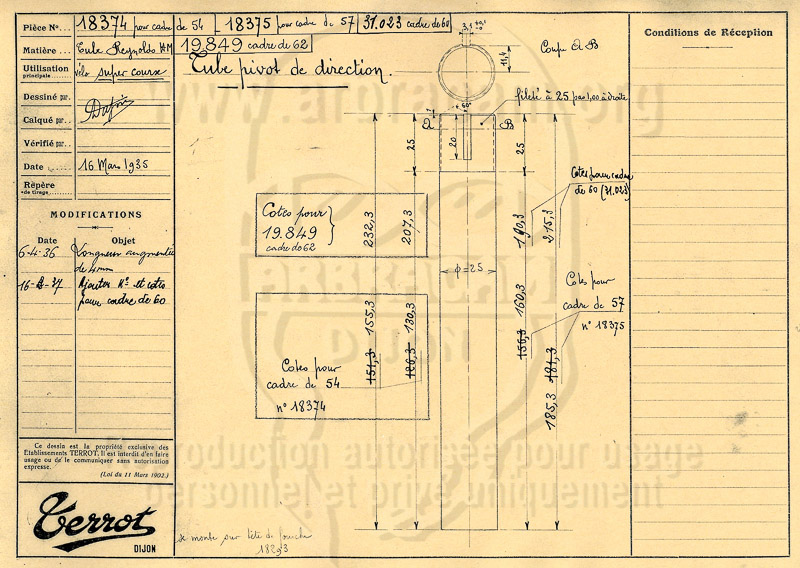 Pièce N° 18374 pour cadre de 54 18375 pour cadre de 57 31.023 cadre de 60
19.849 cadre de 62
Matière Tube Reynolds HM
Utilisation principale vélo super course
Dessiné par
Calqué par
Vérifié par
Date 16 Mars 1935
Repère de tirage
MODIFICATIONS
Date Objet
6-4-36 Longueur augmentée
de 4mm
16-2-37 Ajouter N° et cotes
pour cadre de 60
Ce dessin est la propriété exclusive des
Etablissements TERROT. Il est interdit d'en faire
usage ou de le communiquer sans autorisation
expresse.
(Loi du 11 Mars 1902.)
Terrot
DIJON
Tube pivot de direction.
Coupe A B
11,4
60°
fileté à 25 pas 1,00 à droite
A B
25
20
25
Cotes pour cadre
de 60 (31.023)
Cotes pour
19.849
cadre de 62
232,3
207,3
190,3
215,3
φ=25
155,3
151,3
130,3
126,3
160,3
156,3
185,3 181,3
Cotes pour
cadre de 57
n° 18375
Cotes pour
cadre de 54
n° 18374
se monte sur tête de fourche
Conditions de Réception
www.arbracam.org
ARBRACAM
DIJON
reproduction autorisée pour usage
personnel et privé uniquement